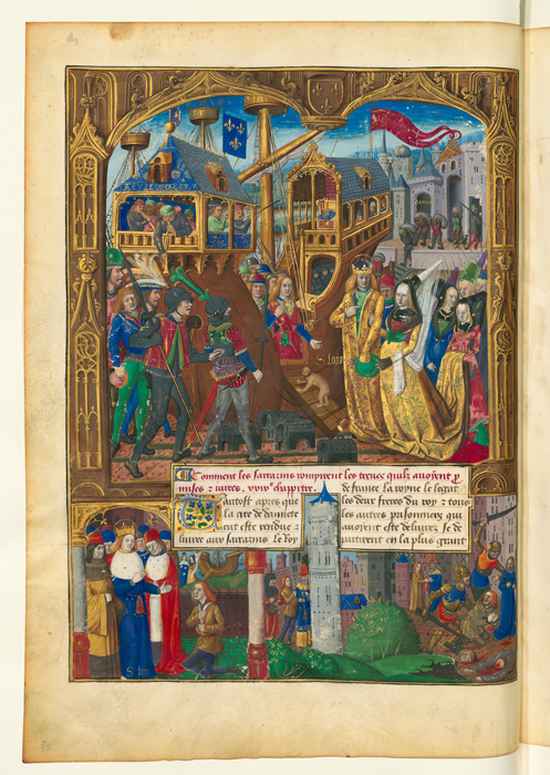 Comment les sarrasins rompirent les treves quilz avoient p
mises & iurees. xviiie. chappitre.
Tantost apres que
la cite de damiete
eut este rendue &
livree aux sarrasins le Roy
de france la royne le legat
les deux freres du roy & tous
les autres prisonniers qui
avoient este delivrez se de
partirent en la plus grant